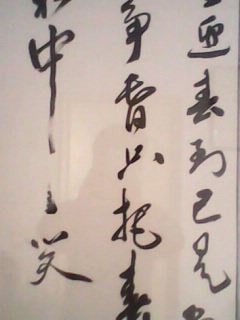 迎春到已是
争春只把春
中笑